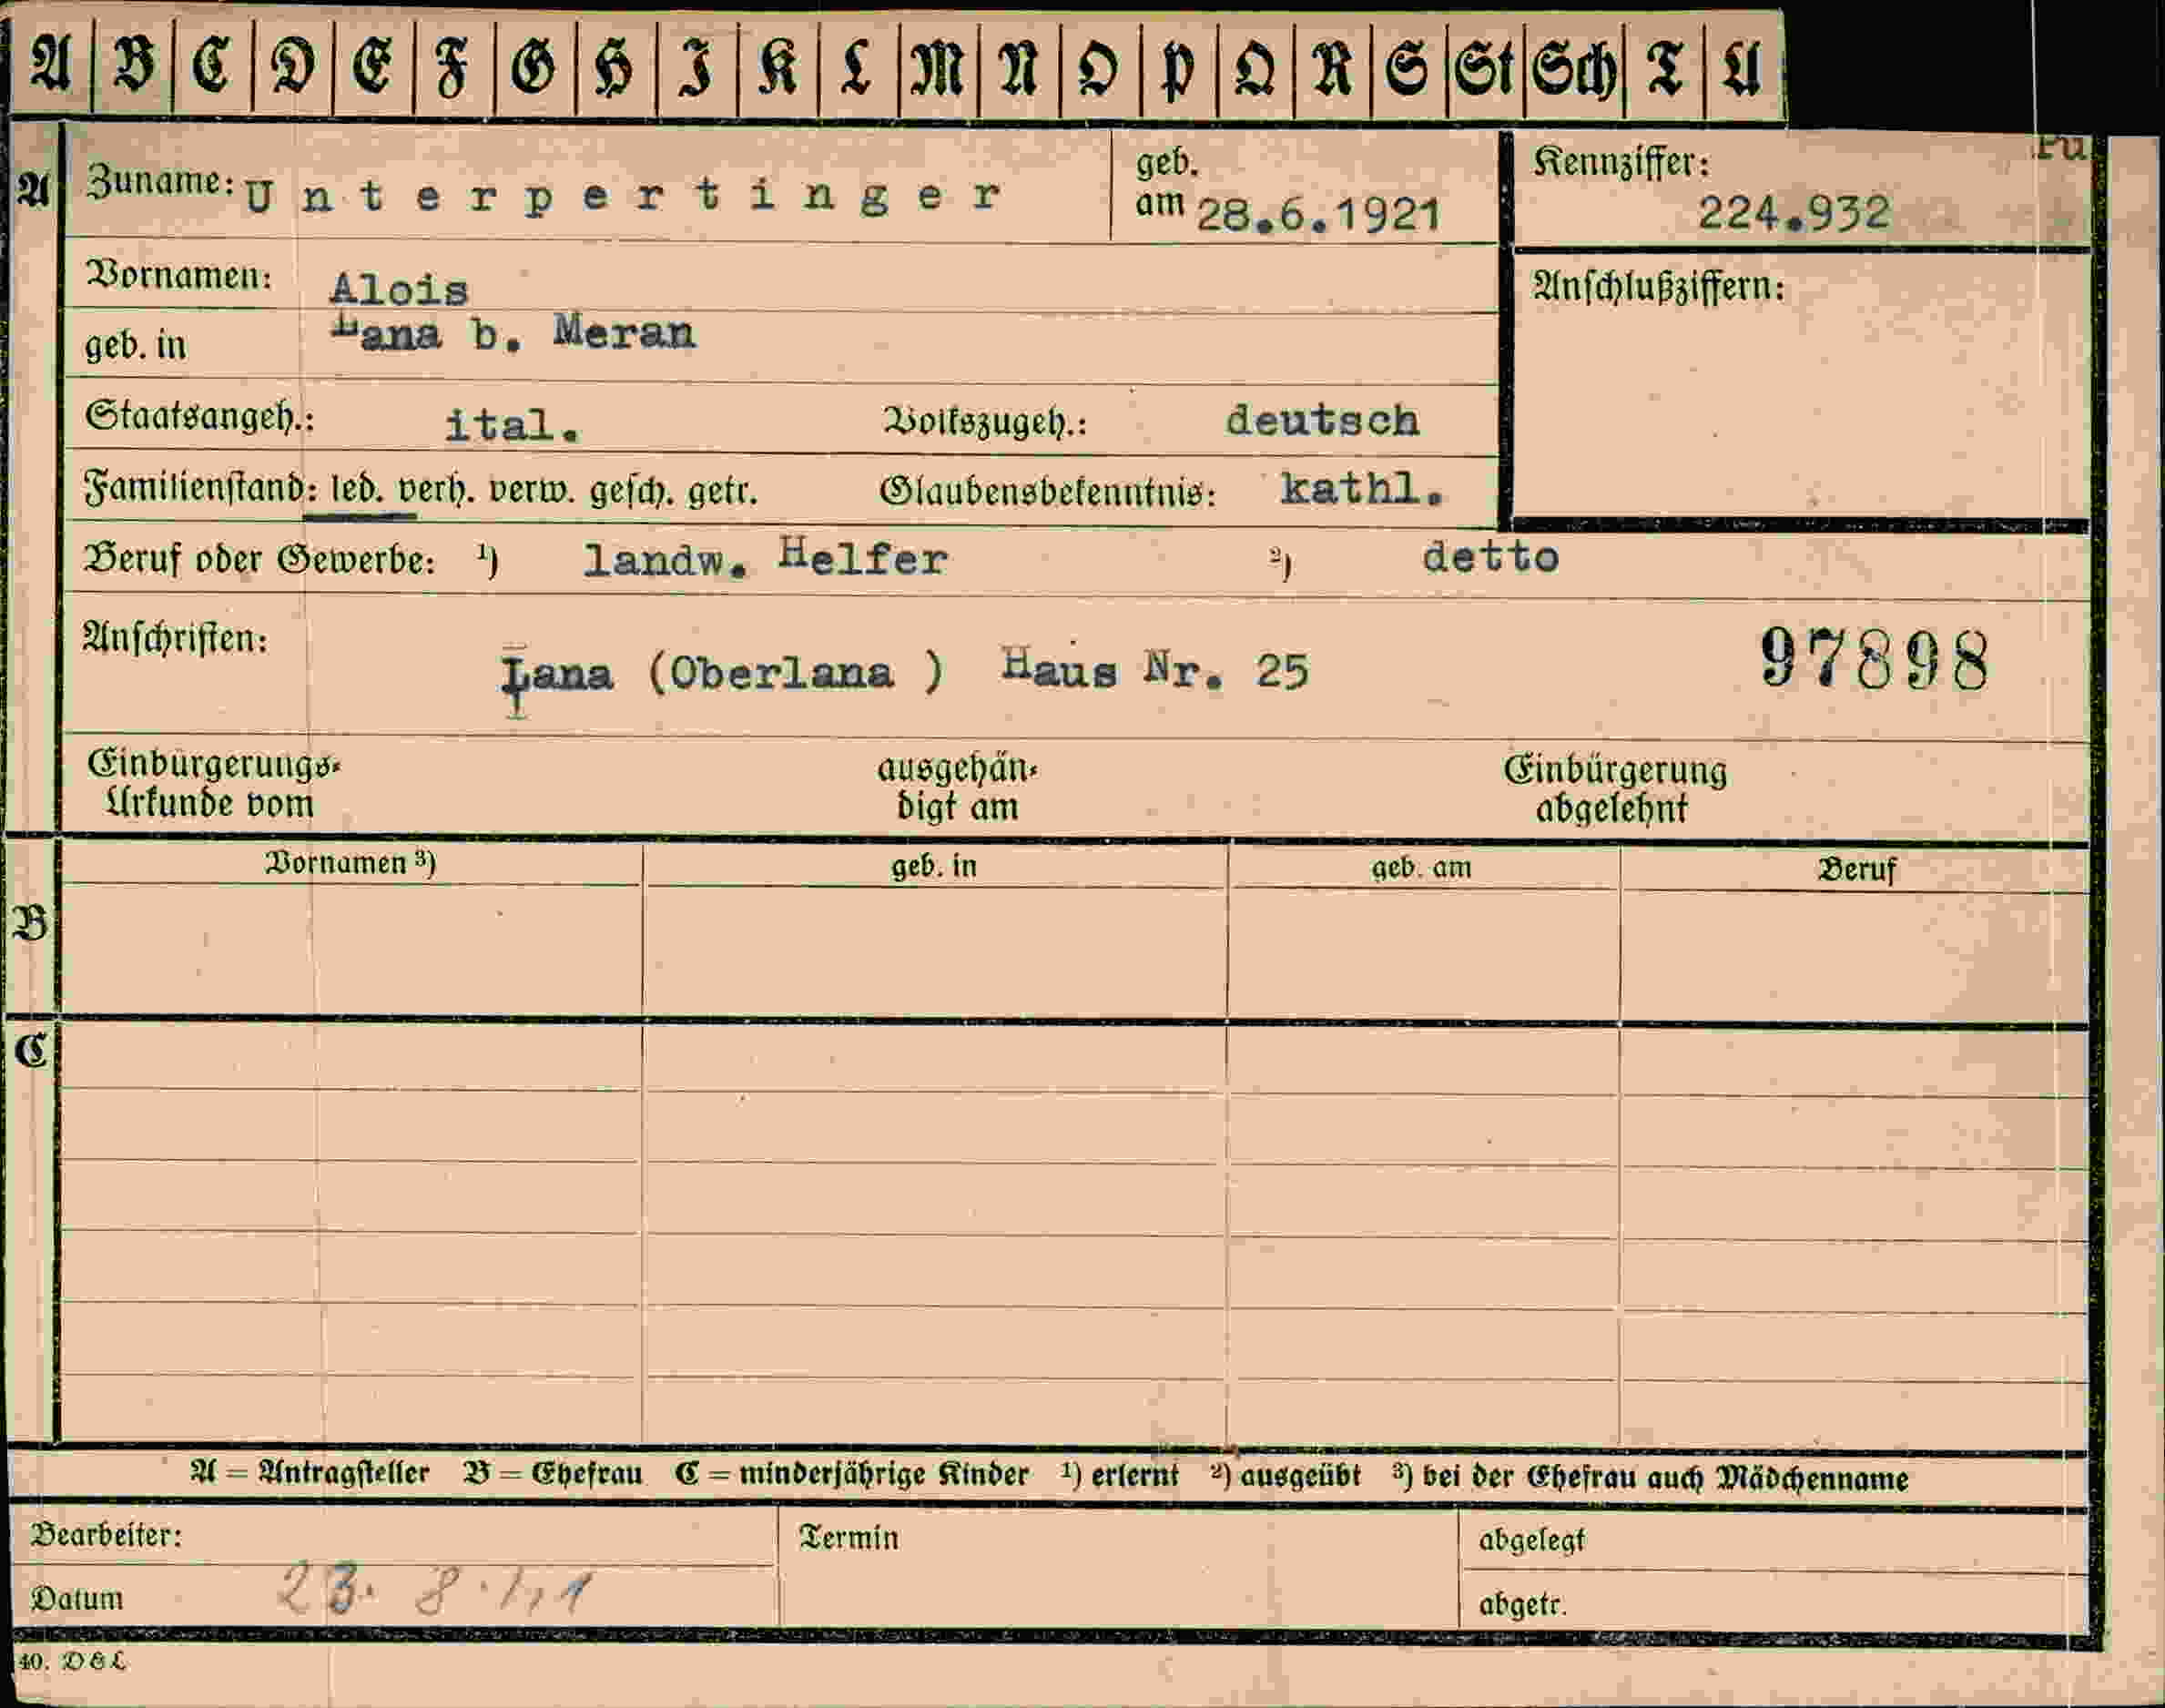 A B C D E F G H I K L M N O P Q R S St Sch T U
A Zuname: Unterpertinger geb. am 28.6.1921 Kennziffer: 224.932
Vornamen: Alois Anschlußziffern:
geb. in Lana b. Meran
Staatsangeh.: ital. Volkszugeh.: deutsch
Familienstand: led. verh. verw. gesch. getr. Glaubensbekenntnis: kathl.
Beruf oder Gewerbe: ¹) landw. Helfer ²) detto
Anschriften: Lana (Oberlana ) Haus Nr. 25 97898
Einbürgerungs-
Urkunde vom
ausgehän-
digt am
Einbürgerung
abgelehnt
Vornamen ³) geb. in geb. am Beruf
B
C
A = Antragsteller B = Ehefrau C = minderjährige Kinder ¹) erlernt ²) ausgeübt ³) bei der Ehefrau auch Mädchenname
Bearbeiter: Termin abgelegt
Datum 23. 8. abgetr.
40. D&L